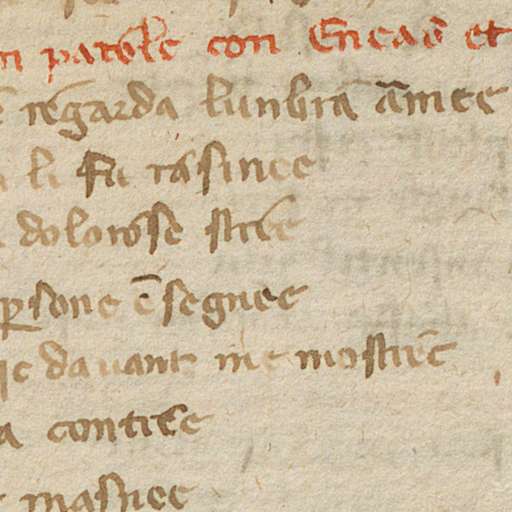 parole con Eneas et
regarda lunbra amee
li fu rasinee
dolorose stree
ꝑsone ēsegnee
davant me mostree
a contree
masnee